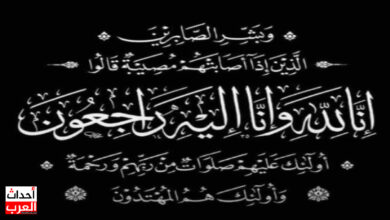 وَبَشِّرِ الصَّابِرِيْنَ
الَّذِيْنَ إِذَا أَصَابَتْهُمْ مُصِيْبَةٌ قَالُوا
إِنَّا لِلَّهِ وَإِنَّا إِلَيْهِ رَاجِعُونَ
أُولَئِكَ عَلَيْهِمْ صَلَوَاتٌ مِنْ رَبِّهِمْ وَرَحْمَةٌ
وَأُولَئِكَ هُمُ الْمُهْتَدُونَ
أحداث
العرب